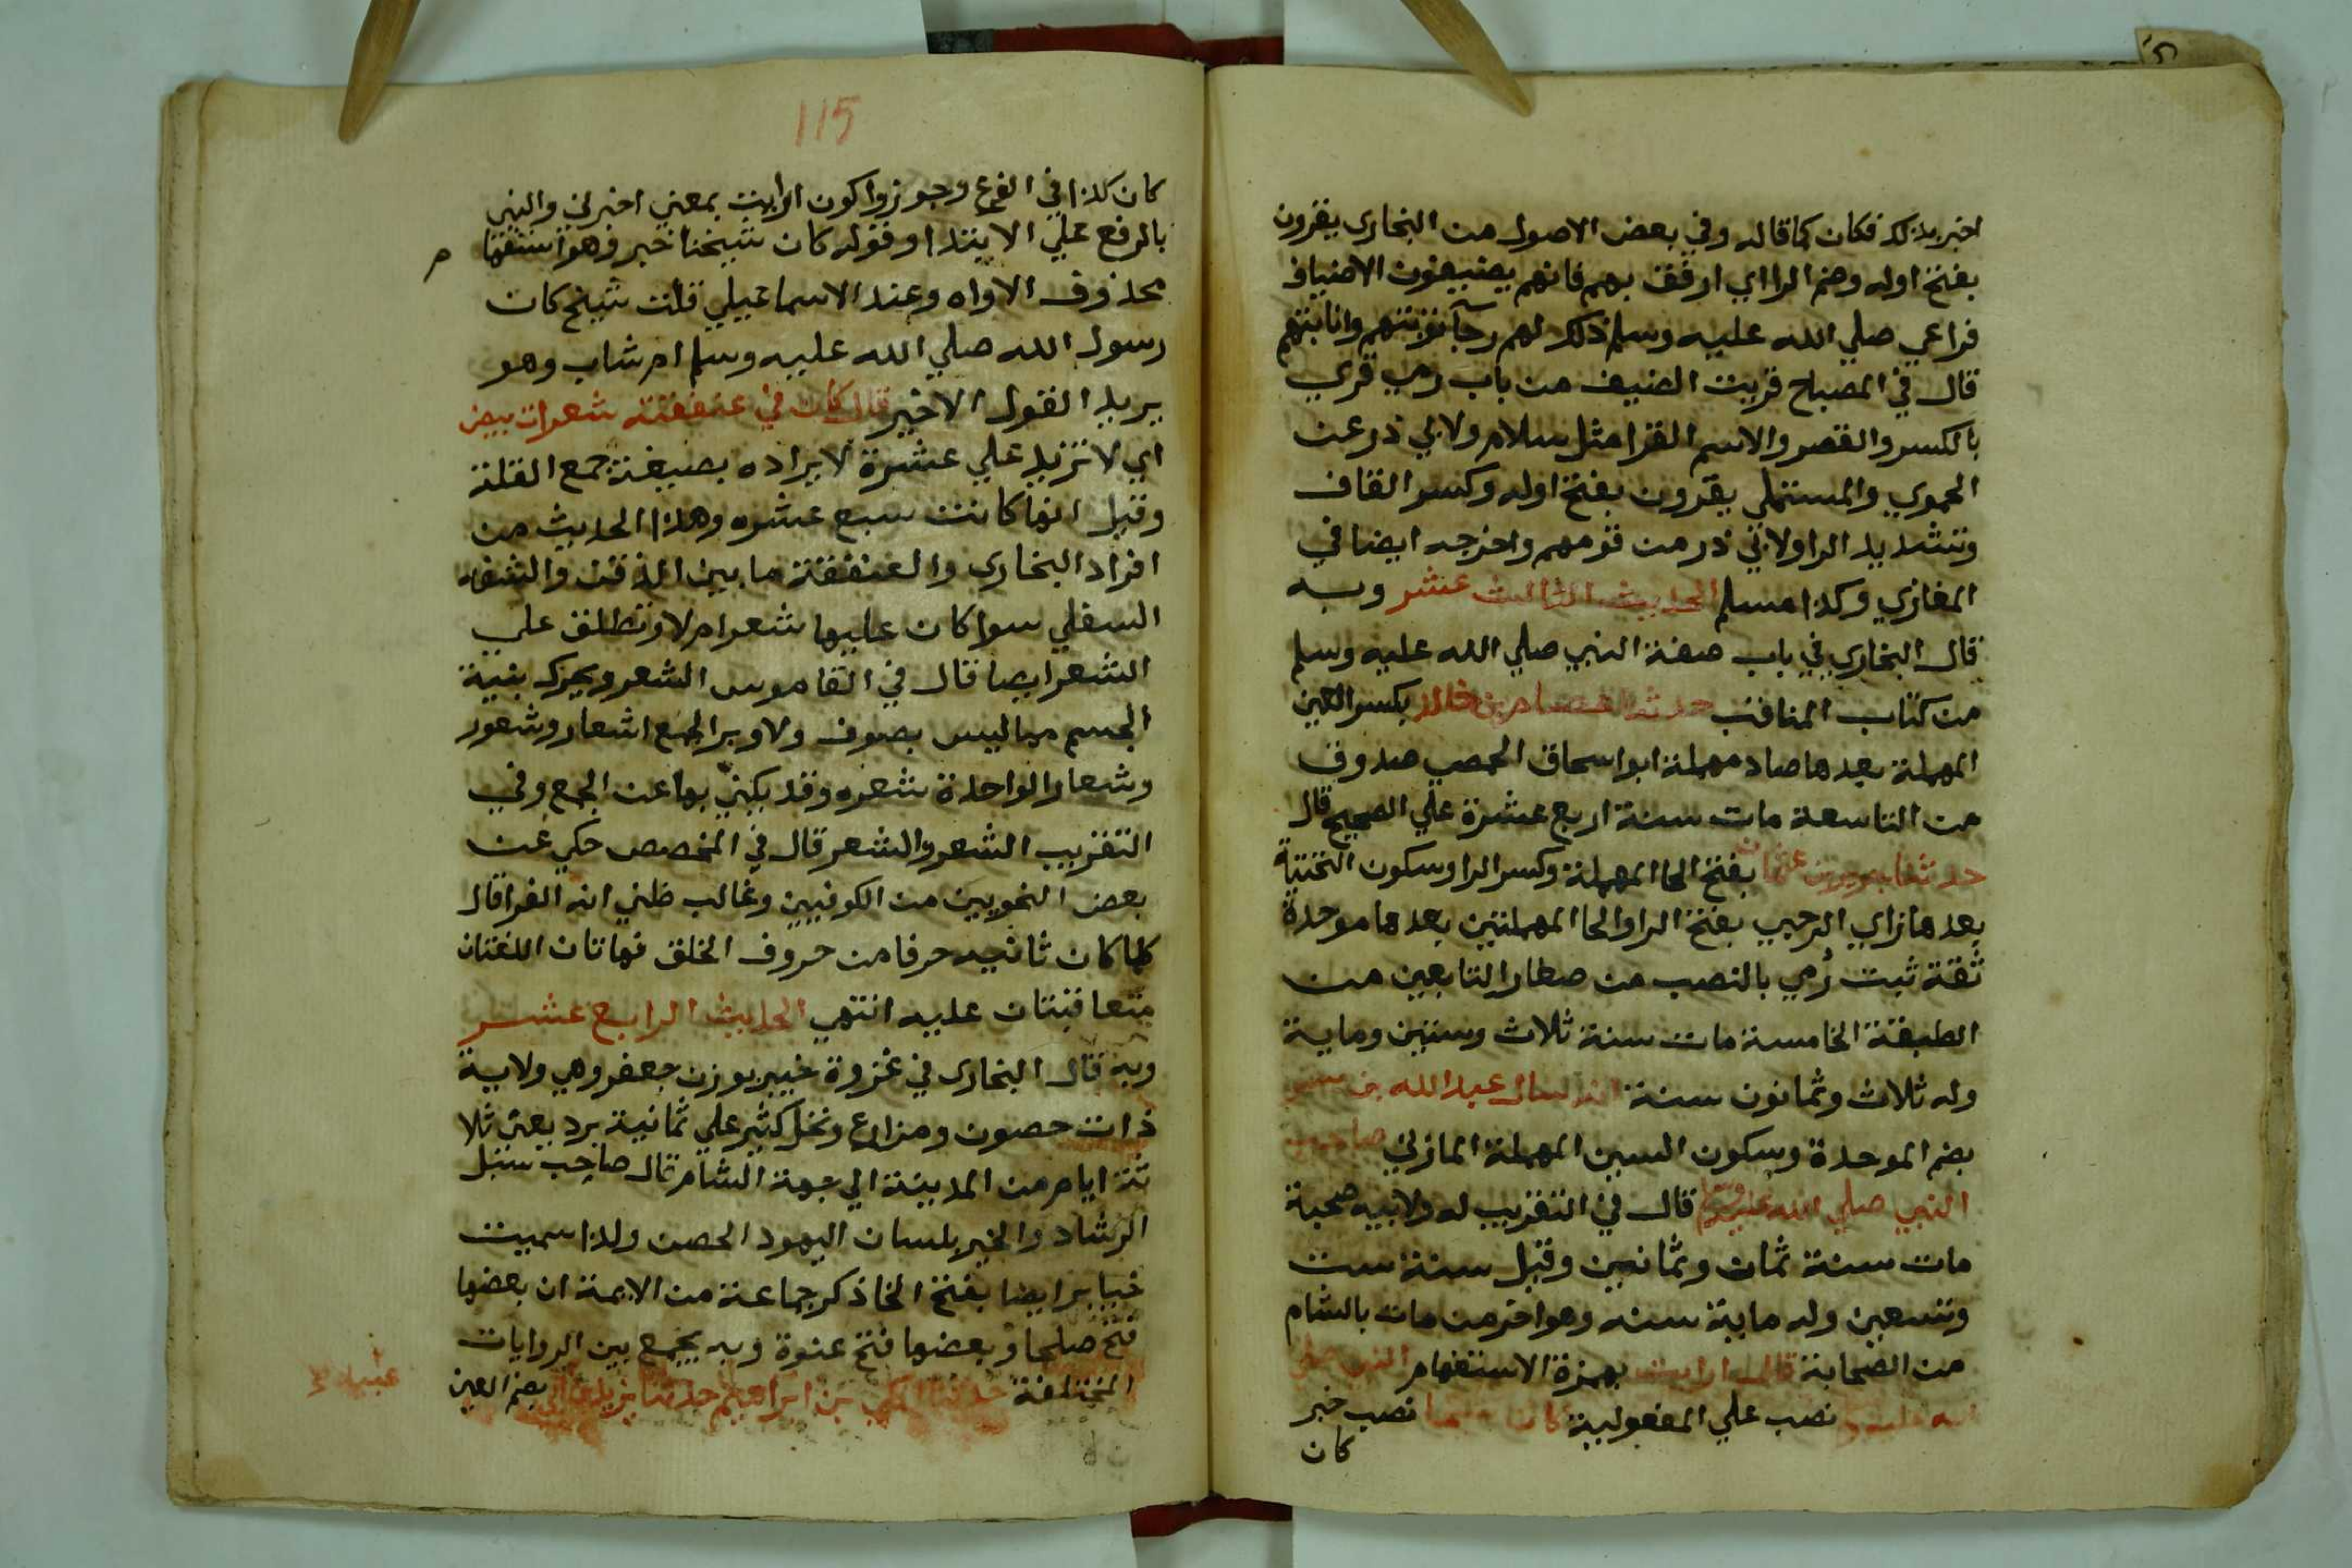 اخبر بذلك فكان كما قاله وفي بعض الاصول من البخاري يقرون
بفتح اوله وضم الرا اي ارفق بهم فانهم يضيفون الاضياف
فراعي صلي الله عليه وسلم ذلك لهم رجآ توبتهم وانابتهم
قال في المصباح قريت الضيف من باب رمي قري
بالكسر والقصر والاسم القرا مثل سلام ولابي ذر عن
الحموي والمستملي يقرون بفتح اوله وكسر القاف
وتشديد الرا ولابي ذر من قومهم واخرجه ايضا في
المغازي وكذا مسلم الحديث الثالث عشر وبه
قال البخاري في باب صفة النبي صلي الله عليه وسلم
من كتاب المناقب حدثنا عصام بن خالد بكسر العين
المهملة بعدها صاد مهملة ابو اسحاق الحمصي صدوق
من التاسعة مات سنة اربع عشرة علي الصحيح قال
حدثنا حريز بن عثمان بفتح الحا المهملة وكسر الرا وسكون التحتية
بعدها زاي الرحبي بفتح الرا والحا المهملتين بعدها موحدة
ثقة ثبت رُمي بالنصب من صغار التابعين من
الطبقة الخامسة مات سنة ثلاث وستين وماية
وله ثلاث وثمانون سنة انه سال عبد الله بن بسر
بضم الموحدة وسكون السين المهملة المازني صاحب
النبي صلي الله عليه وسلم قال في التقريب له ولابيه صحبة
مات سنة ثمان وثمانين وقيل سنة ست
وتسعين وله ماية سنه وهو اخر من مات بالشام
من الصحابة قال ارايت بهمزة الاستفهام النبي صلي
الله عليه وسلم نصب علي المفعولية كان شيخا نصب خبر
كان
115
كان كذا في الفرع وجوزوا كون ارايت بمعني اخبرني والنبي
بالرفع علي الابتدا وقوله كان شيخنا خبر وهو استفها م
محذوف الاداه وعند الاسماعيلي قلت شيخ كان
رسول الله صلي الله عليه وسلم ام شاب وهو
يريد القول الاخير قال كان في عنفقته شعرات بيض
اي لا تزيد علي عشرة لايراده بصيغة جمع القلة
وقيل انها كانت سبع عشره وهذا الحديث من
افراد البخاري والعنفقة ما بين الذقن والشفه
السفلي سوا كان عليها شعر ام لا وتطلق علي
الشعر ايضا قال في القاموس الشعر ويحرك بنية
الجسم مما ليس بصوف ولا وبر الجمع اشعار وشعور
وشعار الواحدة شعره وقد يكني بها عن الجمع وفي
التقريب الشعر والشعر قال في المخصص حكي عن
بعض النحويين من الكوفيين وغالب ظني انه الفرا قال
كلما كان ثانيه حرفا من حروف الخلق فهاتان اللغتان
متعاقبتان عليه انتهي الحديث الرابع عشر
وبه قال البخاري في غزوة خيبر بوزن جعفر وهي ولاية
ذات حصون ومزارع ونخل كثير علي ثمانية برد يعني ثلا
ثة ايام من المدينة الي جهة الشام قال صاحب سبل
الرشاد والخيبر بلسان اليهود الحصن ولذا سميت
خيابر ايضا بفتح الخا ذكر جماعة من الايمة ان بعضها
فتح صلحا وبعضها فتح عنوة وبه يجمع بين الروايات
المختلفة حدثنا المكي بن ابراهيم حدثنا يزيد بن ابي بضم العين
عبيد